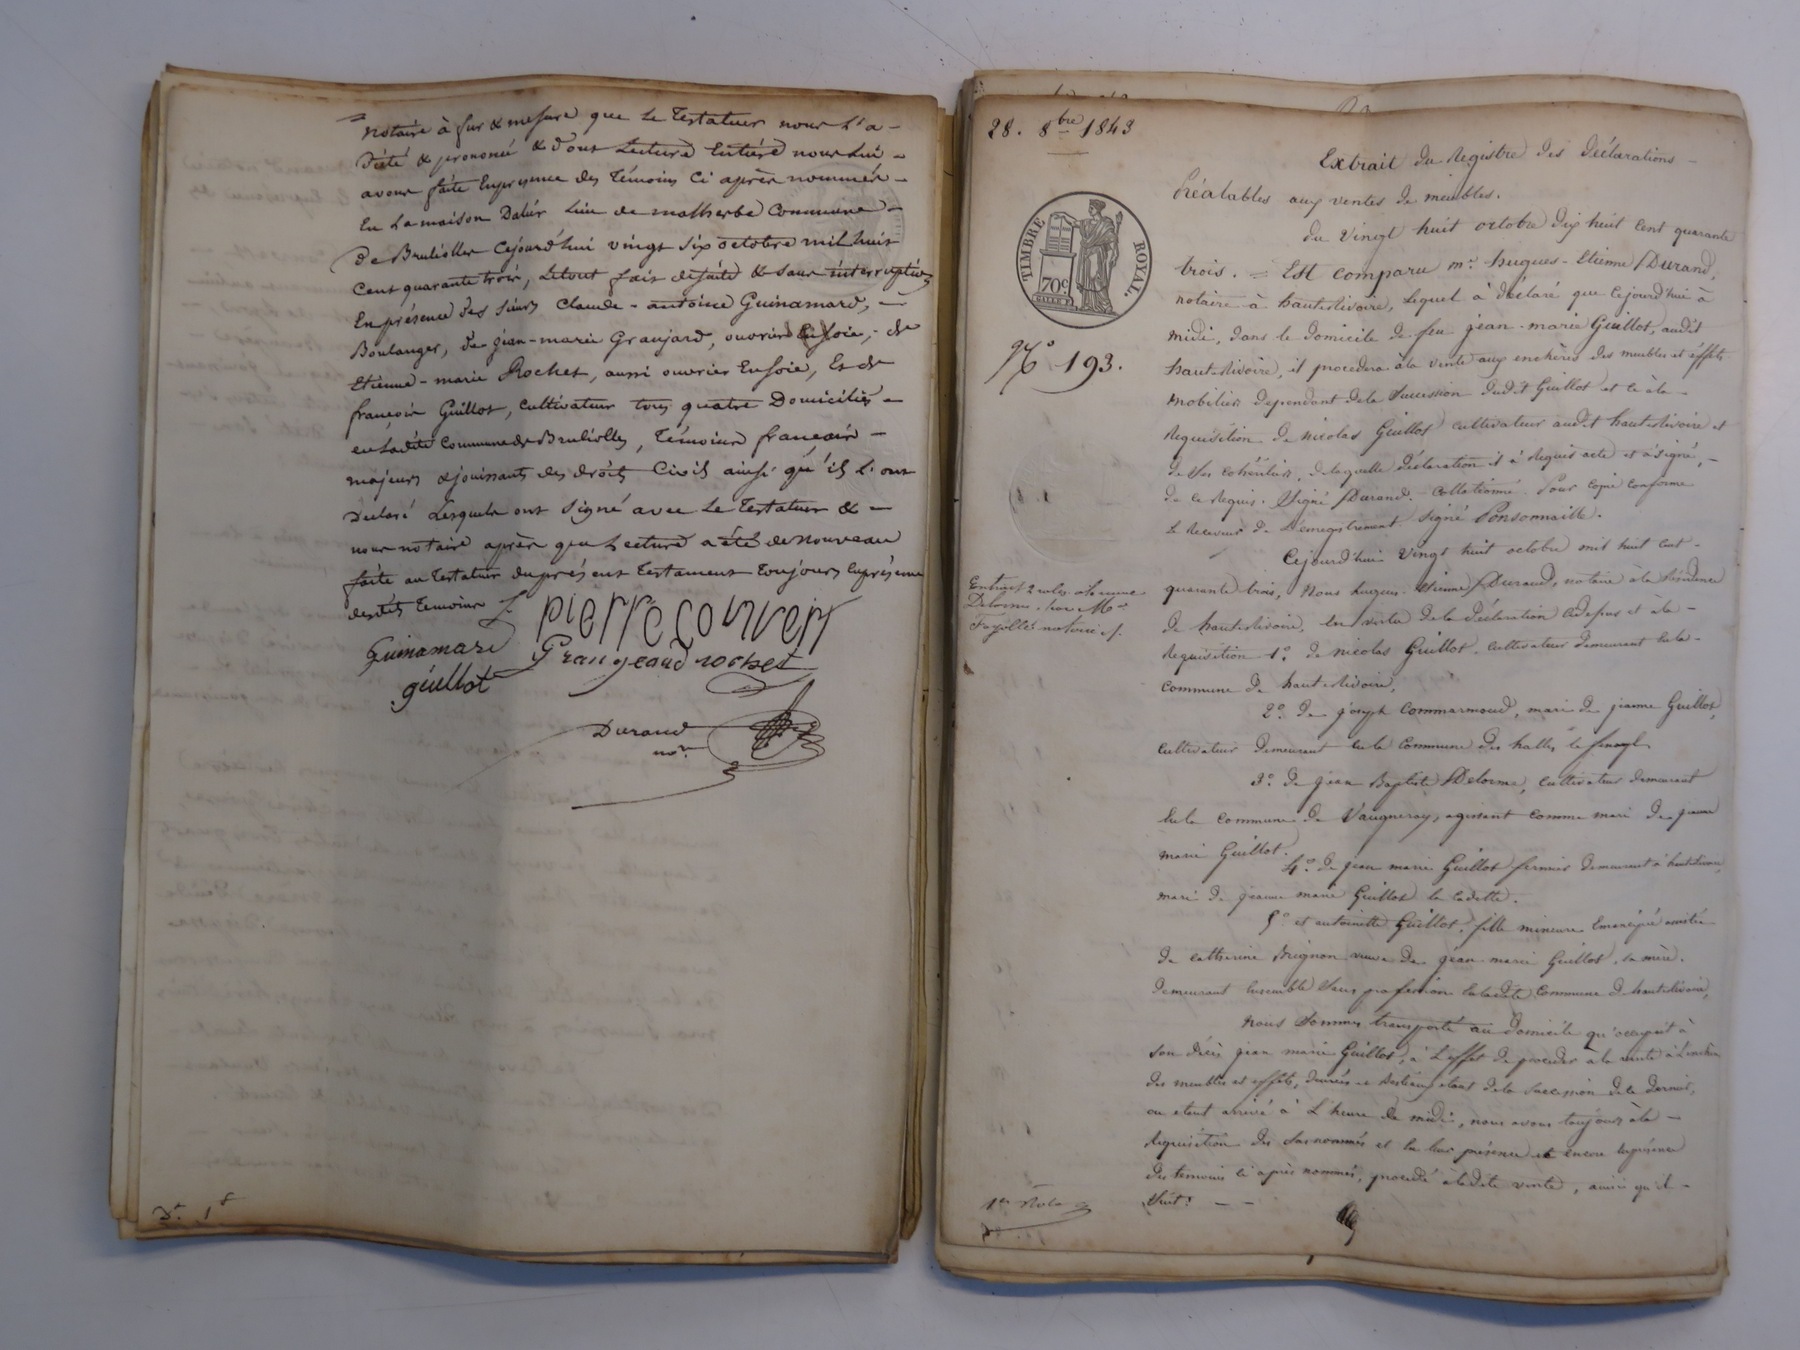 notaire à fur & mesure que le Testateur nous l'a -
dicté & prononcé & dont Lecture Entière nous lui -
avons faite En presence des Témoins Ci après nommés -
En La maison Dalier lieu de malherbe Commune -
de Brulioller Cejourd'hui vingt six octobre mil huit
Cent quarante trois, Letout fait desuite & sans interruption
En présence des sieurs Claude - antoine Guinamard, -
Boulanger, de jean-marie Granjard, ouvrier En soie, - de
Etienne - marie Rochet, aussi ouvrier En soie, Et de
françois Guillot, cultivateur tous quatre Domiciliés -
en Ladite Commune de Bruliolles, Témoins français -
majeurs & jouissants des droits Civils ainsi qu'ils L'ont
Declaré Lesquels ont signé avec Le Testateur & -
nous notaire après que Lecture a été de nouveau
faite au Testateur du présent Testament Toujours En présence
desdits Temoins
pierre couvert
Guinamard
Grangeard rochet
guillot
Durand
nore
Dt. 1f
28. 8bre 1843
Extrait du Registre des Déclarations -
Préalables aux ventes de meubles.
du vingt huit octobre dix huit Cent quarante
trois. = Est comparu mr. hugues-Etienne Durand,
notaire à hauterivoire, Lequel à déclaré que Cejourd'hui à
midi, dans le domicile de feu jean-marie Guillot, audit
hauterivoire, il procedera à la vente aux enchères des meubles et éffets
mobiliers dependant de la Succession dudit Guillot et ce à la -
Requisition de nicolas Guillot cultivateur audit hauterivoire et
de ses cohéritiers, de laquelle déclaration il à Requis acte et à signé, -
de ce Requis. Signé Durand. - Collationné. Pour copie conforme
Le Receveur de L'enregistrement, signé Ponsonnaille.
TIMBRE ROYAL.
70c.
No 193.
Cejourd'hui vingt huit octobre mil huit cent -
quarante trois, Nous hugues Etienne Durand, notaire à la Residence
de hauterivoire, En vertu de la déclaration cidessus et à la -
Requisition 1o. de nicolas Guillot, cultivateur demeurant en la -
Commune de hauterivoire,
Extrait 2 roles
Delorme, par Me
Fayolle notaire
2o. de joseph Commarmond, mari de jeanne Guillot,
cultivateur demeurant en la Commune des halles le fenoyl
3o. de jean Baptiste Delorme, cultivateur demeurant
En la commune de Vaugneray, agissant comme mari de jeanne
marie Guillot.
4o. de jean marie Guillot fermier demeurant à hauterivoire,
mari de jeanne marie Guillot la cadette.
5o et antoinette Guillot, fille mineure Emancipée assistée
de catherine Brignon veuve de jean marie Guillot, sa mère.
demeurant Ensemble Sans profession en ladite Commune de hauterivoire,
Nous Sommes transporté au domicile qu'occupait à
son décès jean marie Guillot, à L'effet de proceder à la vente à L'enchère
des meubles et effets, denrées et Bestiaux étant de la Succession de ce dernier,
ou etant arrivé à L'heure de midi, nous avons toujours à la -
Requisition des Susnommés et En leur présence et encore En présence
des temoins ci après nommés, procédé à ladite vente, ainsi qu'il -
Suit: - -
1er Role